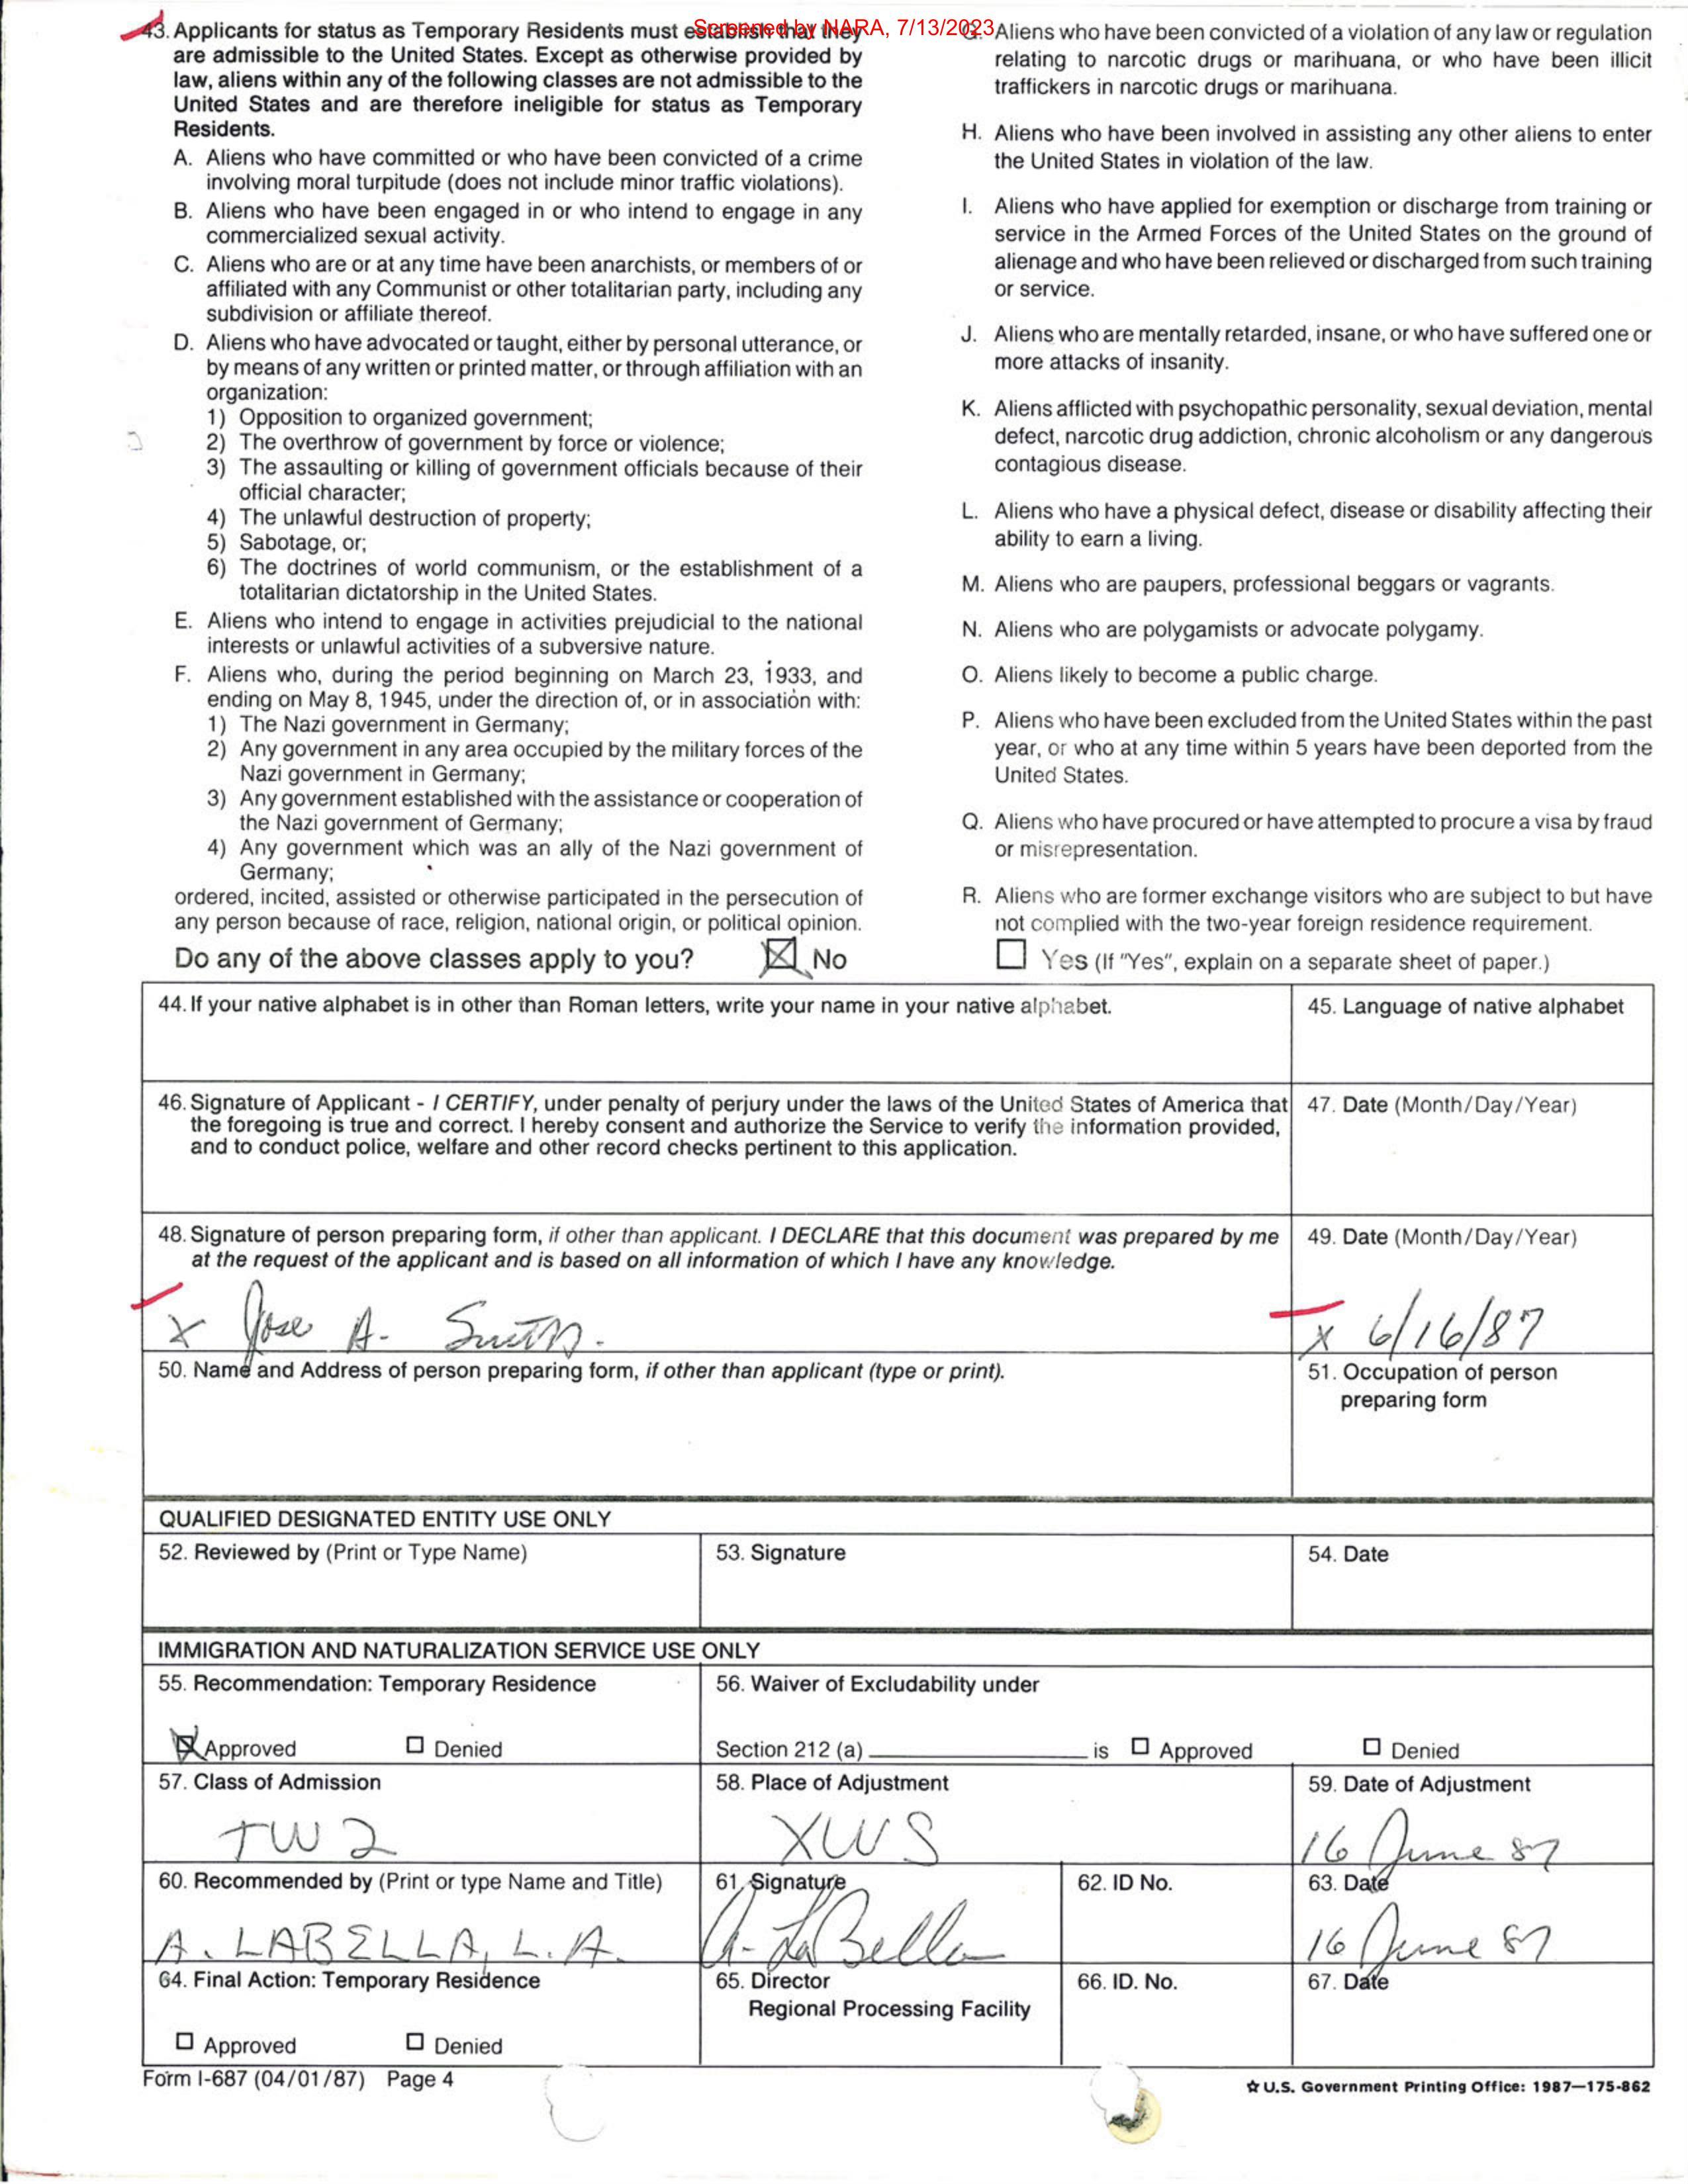 Screened by NARA, 7/13/2023
43. Applicants for status as Temporary Residents must establish that they
are admissible to the United States. Except as otherwise provided by
law, aliens within any of the following classes are not admissible to the
United States and are therefore ineligible for status as Temporary
Residents.
A. Aliens who have committed or who have been convicted of a crime
involving moral turpitude (does not include minor traffic violations).
B. Aliens who have been engaged in or who intend to engage in any
commercialized sexual activity.
C. Aliens who are or at any time have been anarchists, or members of or
affiliated with any Communist or other totalitarian party, including any
subdivision or affiliate thereof.
D. Aliens who have advocated or taught, either by personal utterance, or
by means of any written or printed matter, or through affiliation with an
organization:
1) Opposition to organized government;
2) The overthrow of government by force or violence;
3) The assaulting or killing of government officials because of their
official character;
4) The unlawful destruction of property;
5) Sabotage, or;
6) The doctrines of world communism, or the establishment of a
totalitarian dictatorship in the United States.
E. Aliens who intend to engage in activities prejudicial to the national
interests or unlawful activities of a subversive nature.
F. Aliens who, during the period beginning on March 23, 1933, and
ending on May 8, 1945, under the direction of, or in association with:
1) The Nazi government in Germany;
2) Any government in any area occupied by the military forces of the
Nazi government in Germany;
3) Any government established with the assistance or cooperation of
the Nazi government of Germany;
4) Any government which was an ally of the Nazi government of
Germany;
ordered, incited, assisted or otherwise participated in the persecution of
any person because of race, religion, national origin, or political opinion.
G. Aliens who have been convicted of a violation of any law or regulation
relating to narcotic drugs or marihuana, or who have been illicit
traffickers in narcotic drugs or marihuana.
H. Aliens who have been involved in assisting any other aliens to enter
the United States in violation of the law.
I. Aliens who have applied for exemption or discharge from training or
service in the Armed Forces of the United States on the ground of
alienage and who have been relieved or discharged from such training
or service.
J. Aliens who are mentally retarded, insane, or who have suffered one or
more attacks of insanity.
K. Aliens afflicted with psychopathic personality, sexual deviation, mental
defect, narcotic drug addiction, chronic alcoholism or any dangerous
contagious disease.
L. Aliens who have a physical defect, disease or disability affecting their
ability to earn a living.
M. Aliens who are paupers, professional beggars or vagrants.
N. Aliens who are polygamists or advocate polygamy.
O. Aliens likely to become a public charge.
P. Aliens who have been excluded from the United States within the past
year, or who at any time within 5 years have been deported from the
United States.
Q. Aliens who have procured or have attempted to procure a visa by fraud
or misrepresentation.
R. Aliens who are former exchange visitors who are subject to but have
not complied with the two-year foreign residence requirement.
Do any of the above classes apply to you? No Yes (If "Yes", explain on a separate sheet of paper.)
44. If your native alphabet is in other than Roman letters, write your name in your native alphabet.
45. Language of native alphabet
46. Signature of Applicant - I CERTIFY, under penalty of perjury under the laws of the United States of America that
the foregoing is true and correct. I hereby consent and authorize the Service to verify the information provided,
and to conduct police, welfare and other record checks pertinent to this application.
47. Date (Month/Day/Year)
48. Signature of person preparing form, if other than applicant. I DECLARE that this document was prepared by me
at the request of the applicant and is based on all information of which I have any knowledge.
X Jose A.
49. Date (Month/Day/Year)
X 6/16/87
50. Name and Address of person preparing form, if other than applicant (type or print).
51. Occupation of person
preparing form
QUALIFIED DESIGNATED ENTITY USE ONLY
52. Reviewed by (Print or Type Name)
53. Signature
54. Date
IMMIGRATION AND NATURALIZATION SERVICE USE ONLY
55. Recommendation: Temporary Residence
Approved Denied
56. Waiver of Excludability under
Section 212 (a) is Approved Denied
57. Class of Admission
TW2
58. Place of Adjustment
XWS
59. Date of Adjustment
16 June 87
60. Recommended by (Print or type Name and Title)
A. LABELLA, L.A.
61. Signature
A. LaBella
62. ID No.
63. Date
16 June 87
64. Final Action: Temporary Residence
Approved Denied
65. Director
Regional Processing Facility
66. ID. No.
67. Date
Form I-687 (04/01/87) Page 4
☆ U.S. Government Printing Office: 1987—175-862